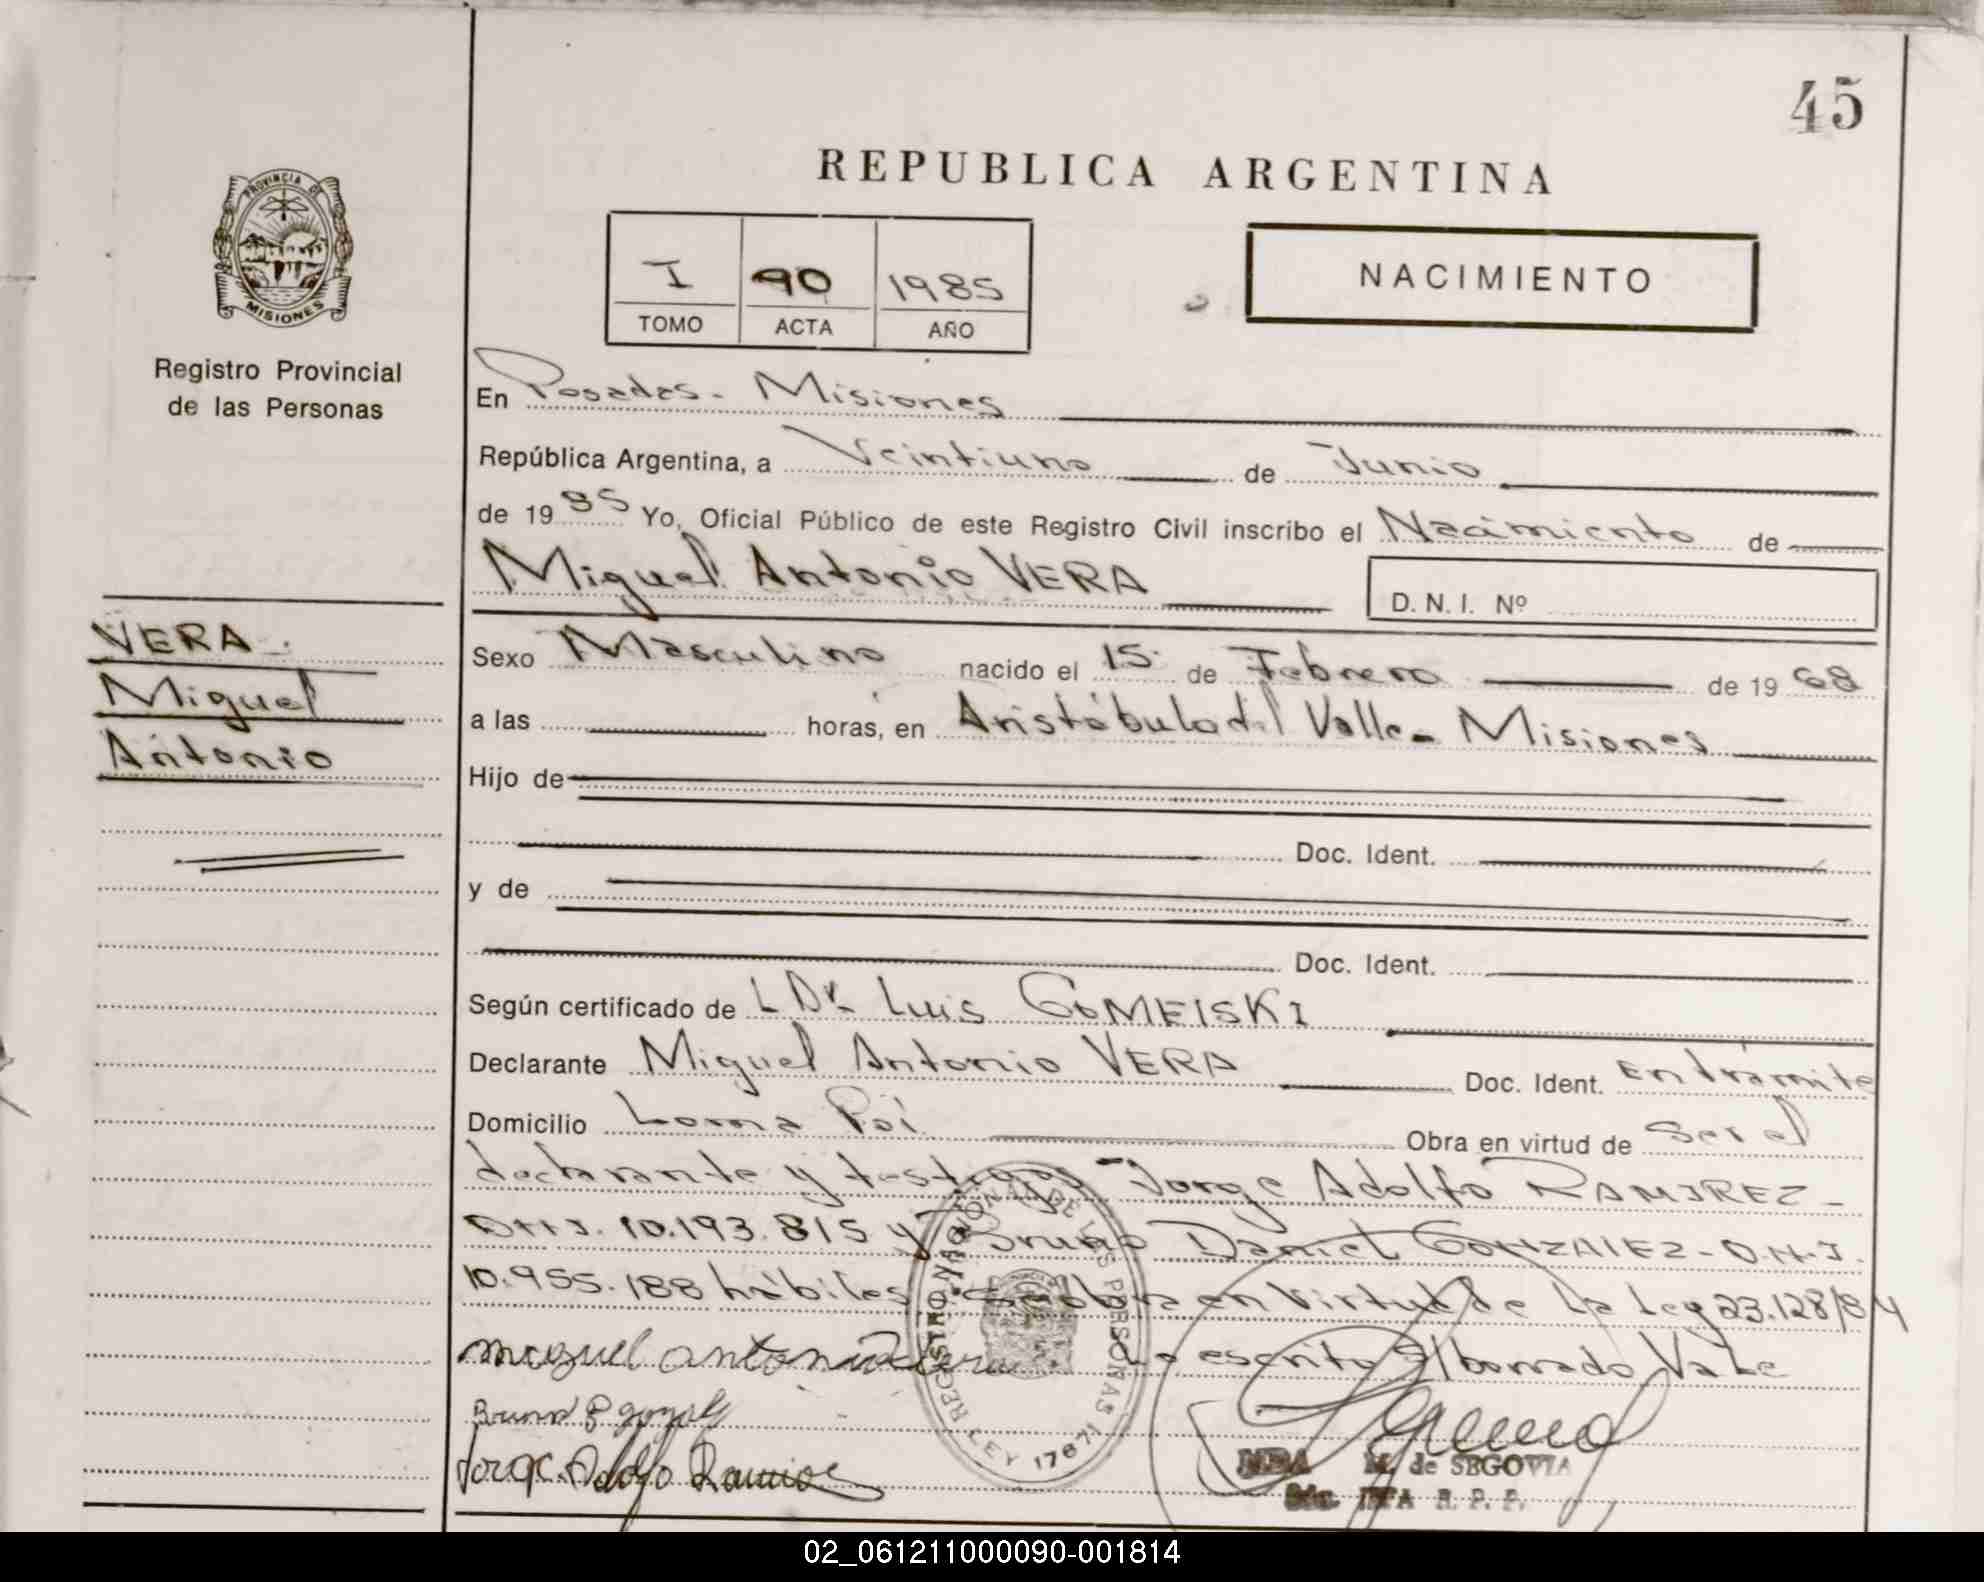 45
REPUBLICA ARGENTINA
PROVINCIA DE
MISIONES
Registro Provincial
de las Personas
I 90 1985
TOMO ACTA AÑO
NACIMIENTO
En Posadas - Misiones
República Argentina, a Veintiuno de Junio
de 1985 Yo, Oficial Público de este Registro Civil inscribo el Nacimiento de
Miguel Antonio VERA D.N.I. Nº
VERA.
Miguel
Antonio
Sexo Masculino nacido el 15 de Febrero de 1968
a las horas, en Aristóbulo del Valle - Misiones
Hijo de
Doc. Ident.
y de
Doc. Ident.
Según certificado de Dr. Luis GOMEISKI
Declarante Miguel Antonio VERA Doc. Ident. En trámite
Domicilio Loma Poí Obra en virtud de Ser el
declarante y testigos Jorge Adolfo RAMIREZ -
D.N.I. 10.193.815 y Bruno Daniel GONZALEZ - D.N.I.
10.955.188 hábiles Se labra en virtud de La Ley 23.128/84
miguel antonio vera Lo escrito s/borrado Vale
Jorge Adolfo Ramirez
REGISTRO NACIONAL DE LAS PERSONAS
LEY 17671
M. de SEGOVIA
R. P. P.
02_061211000090-001814